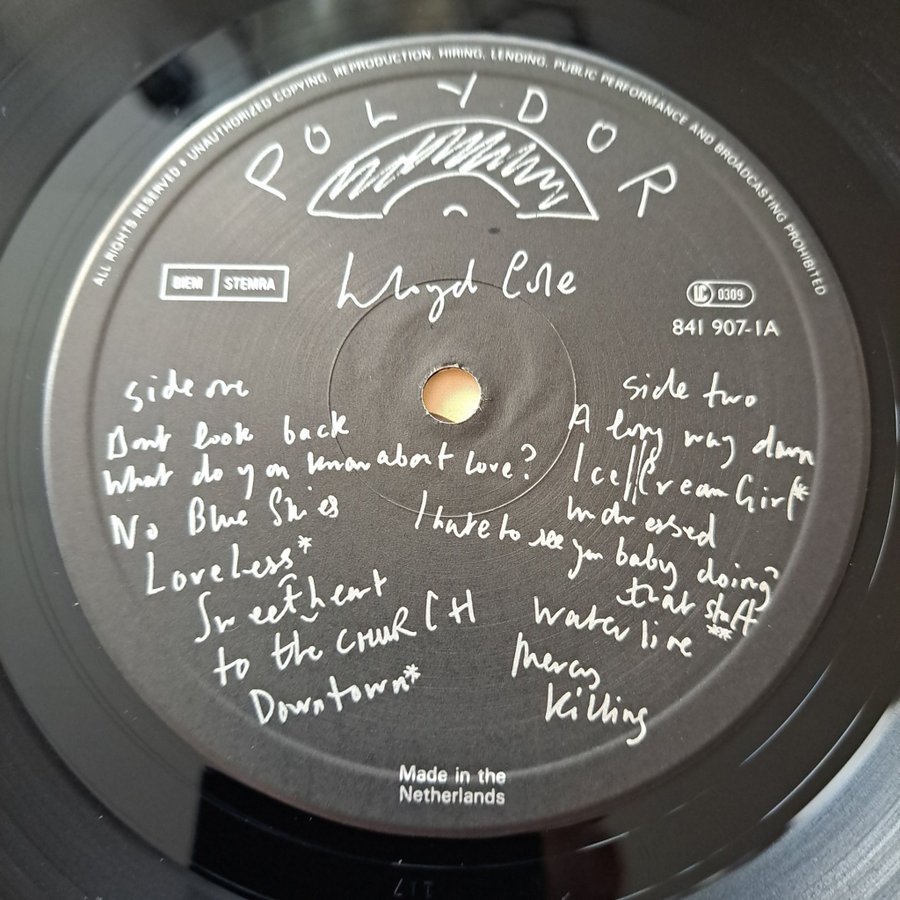 ALL RIGHTS RESERVED • UNAUTHORIZED COPYING, REPRODUCTION, HIRING, LENDING, PUBLIC PERFORMANCE AND BROADCASTING PROHIBITED
POLYDOR
BIEM STEMRA
Lloyd Cole
LC 0309
841 907-1A
side one
Dont look back
What do you know about Love?
No Blue Skies
Loveless*
Sweetheart
to the CHURCH
Downtown*
side two
A long way down
Ice Cream Girl*
Undressed
I hate to see you baby doing
that stuff
Waterline **
Mercy
Killing
Made in the
Netherlands
217